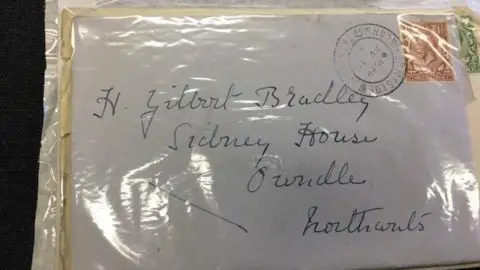 H. Gilbert Bradley
Sidney House
Oundle
Northants